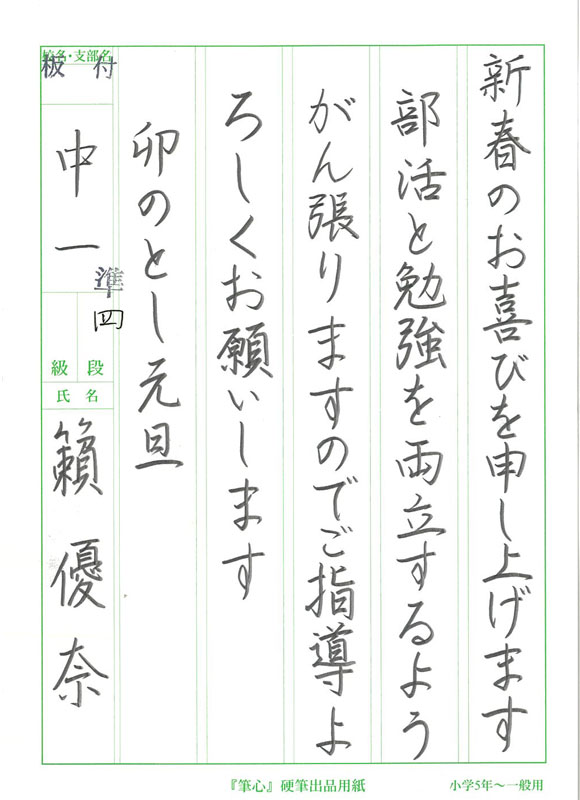 新春のお喜びを申し上げます
部活と勉強を両立するよう
がん張りますのでご指導よ
ろしくお願いします
卯のとし元旦
校名・支部名
板付
中一
準四
級段
氏名
籟優奈
『筆心』硬筆出品用紙
小学5年～一般用